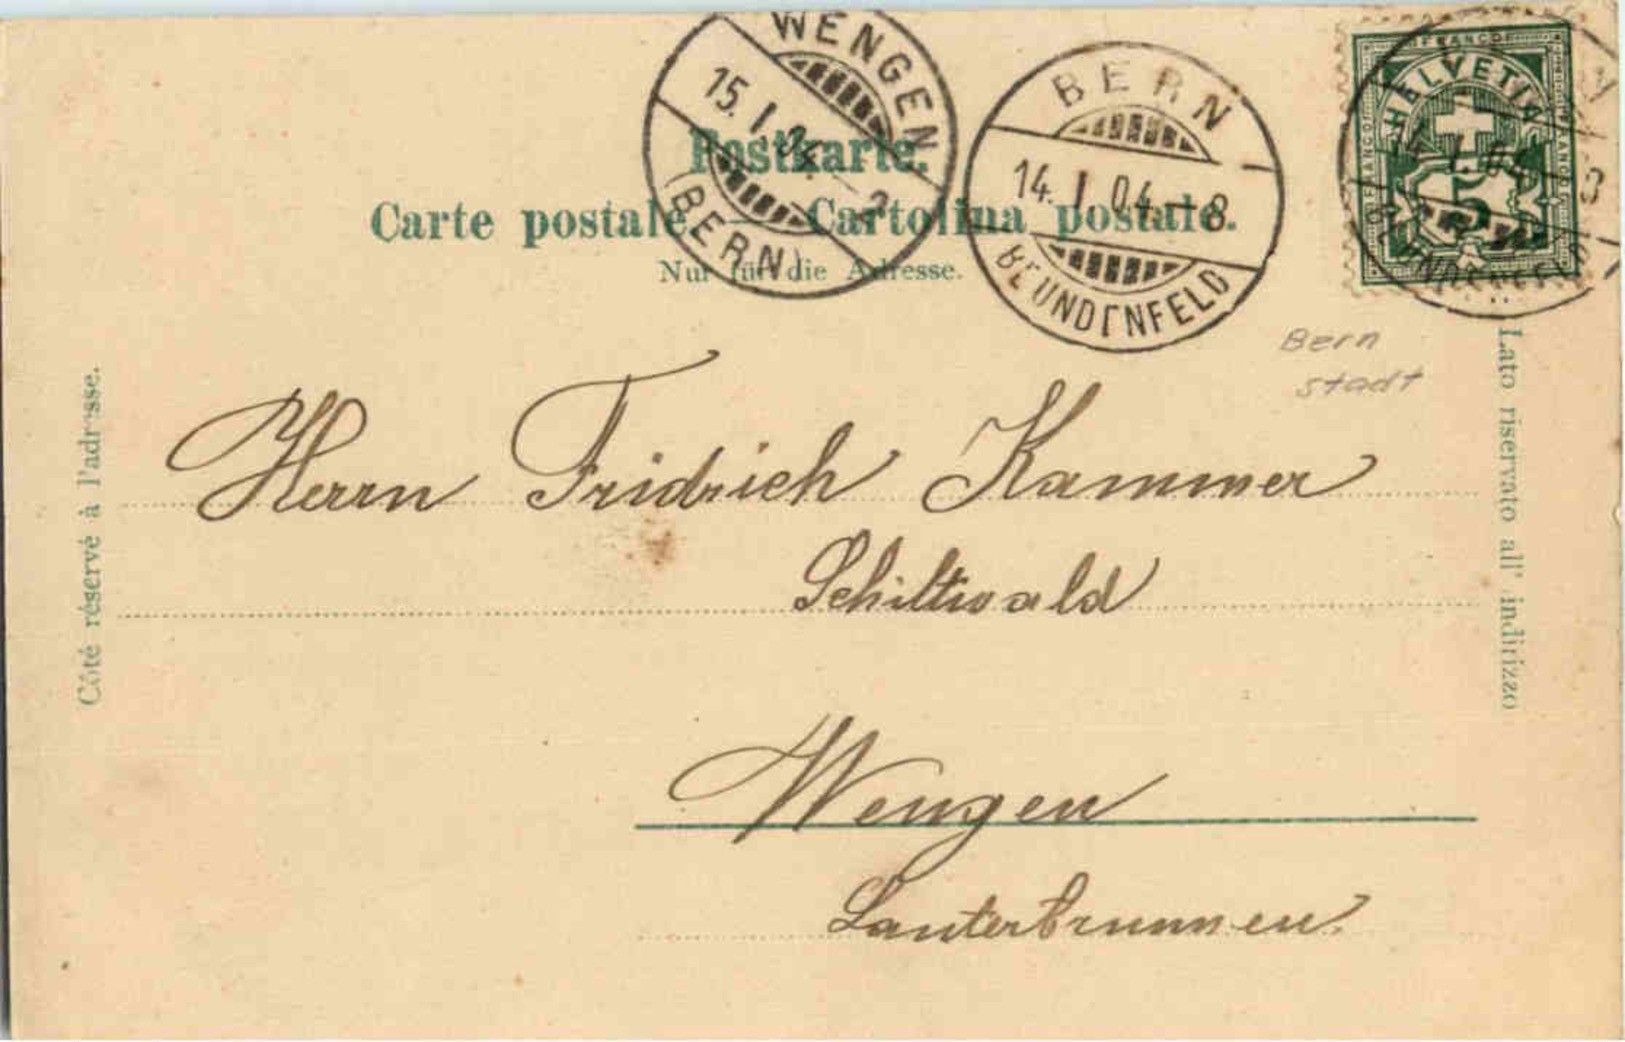 WENGEN
15. I. 04. – 8
(BERN)
BERN
14. I. 04. – 8
BEUNDENFELD
FRANCO
HELVETIA
5
FRANCO
FRANCO
I. 04
BEUNDENFELD
Postkarte.
Carte postale. — Cartolina postale.
Nur für die Adresse.
Bern
stadt
Côté réservé à l'adresse.
Lato riservato all' indirizzo
Herrn Fridrich Kammer
Schiltwald
Wengen
Lauterbrunnen.